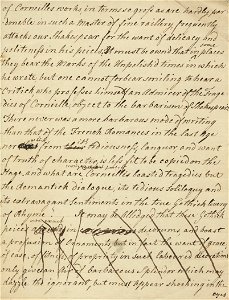 of Corneilles works in terms so gross as are hardly par
donable in such a Master of fine raillery frequently
attacks our Shakspear for the want of delicacy and
politeness in his pieces. It must be owned that in some places
they bear the Marks of the Unpolished times in which
he wrote but one cannot forbear smiling to hear a
Critick who professes himself an Admirer of the Trage
dies of Corneille object to the barbarism of Shakespear
There never was a more barbarous mode of writing
than that of the French Romances in the last Age
nor from which tediousness, languor and want
of truth of character is less fit to be copied on the
Stage, and what are Corneilles boasted tragedies but
the Romantick dialogue, its tedious Soliloquy and
its extravagant Sentiments in the true Gothick livery
of Rhyme. It may be alledged that these Gothick
pieces in decorums and boast
a profusion of ornaments, but in fact the want of grace,
of ease, of propriety in such laboured decorations
only give an air of barbarous Splendor which may
dazzle the ignorant, but must appear shocking in the
eyes